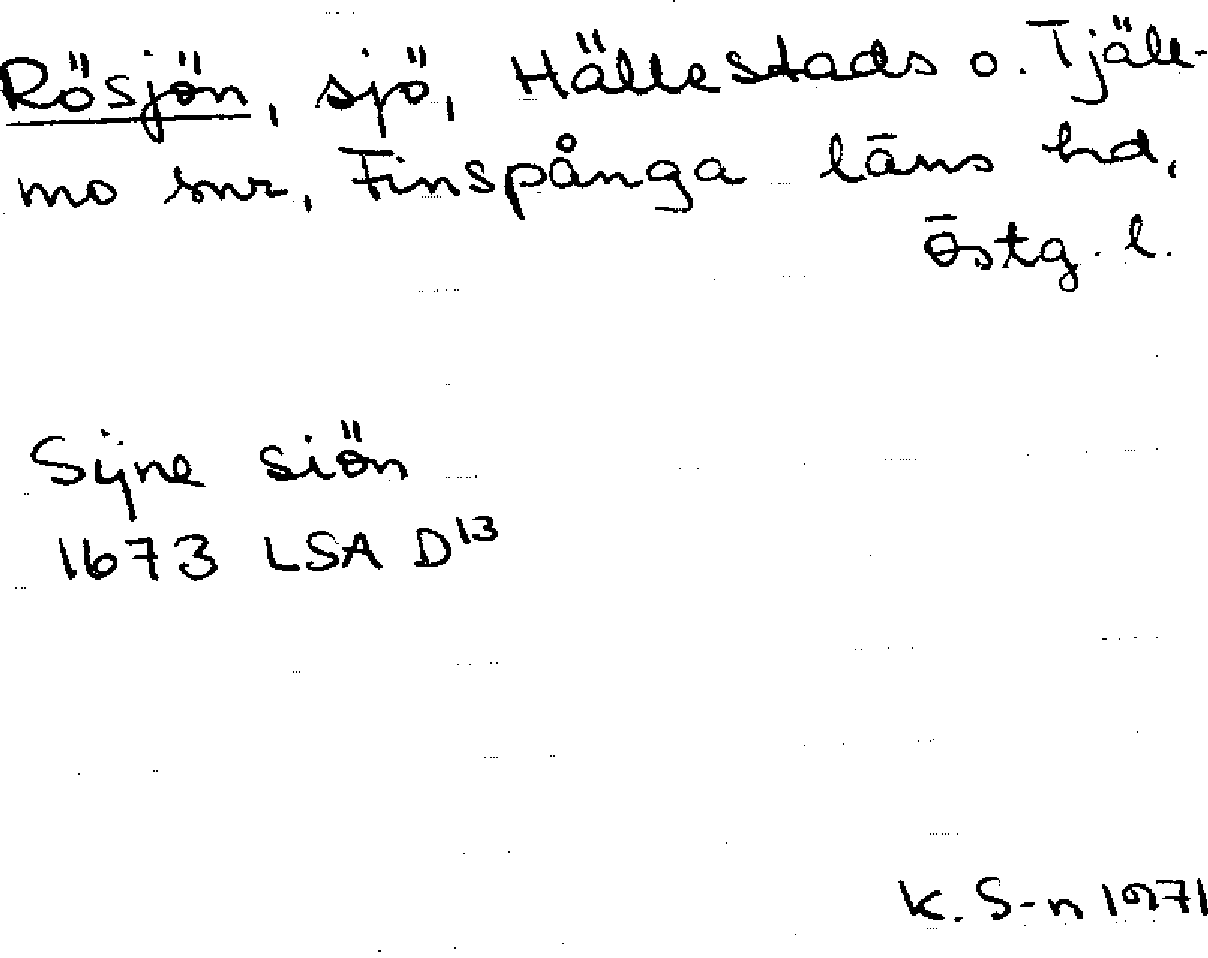 Rösjön, sjö, Hällestads o. Tjäll-
mo snr, Finspånga läns hd,
Östg. l.
Sÿne siön
1673 LSA D¹³
K. S-n 1971